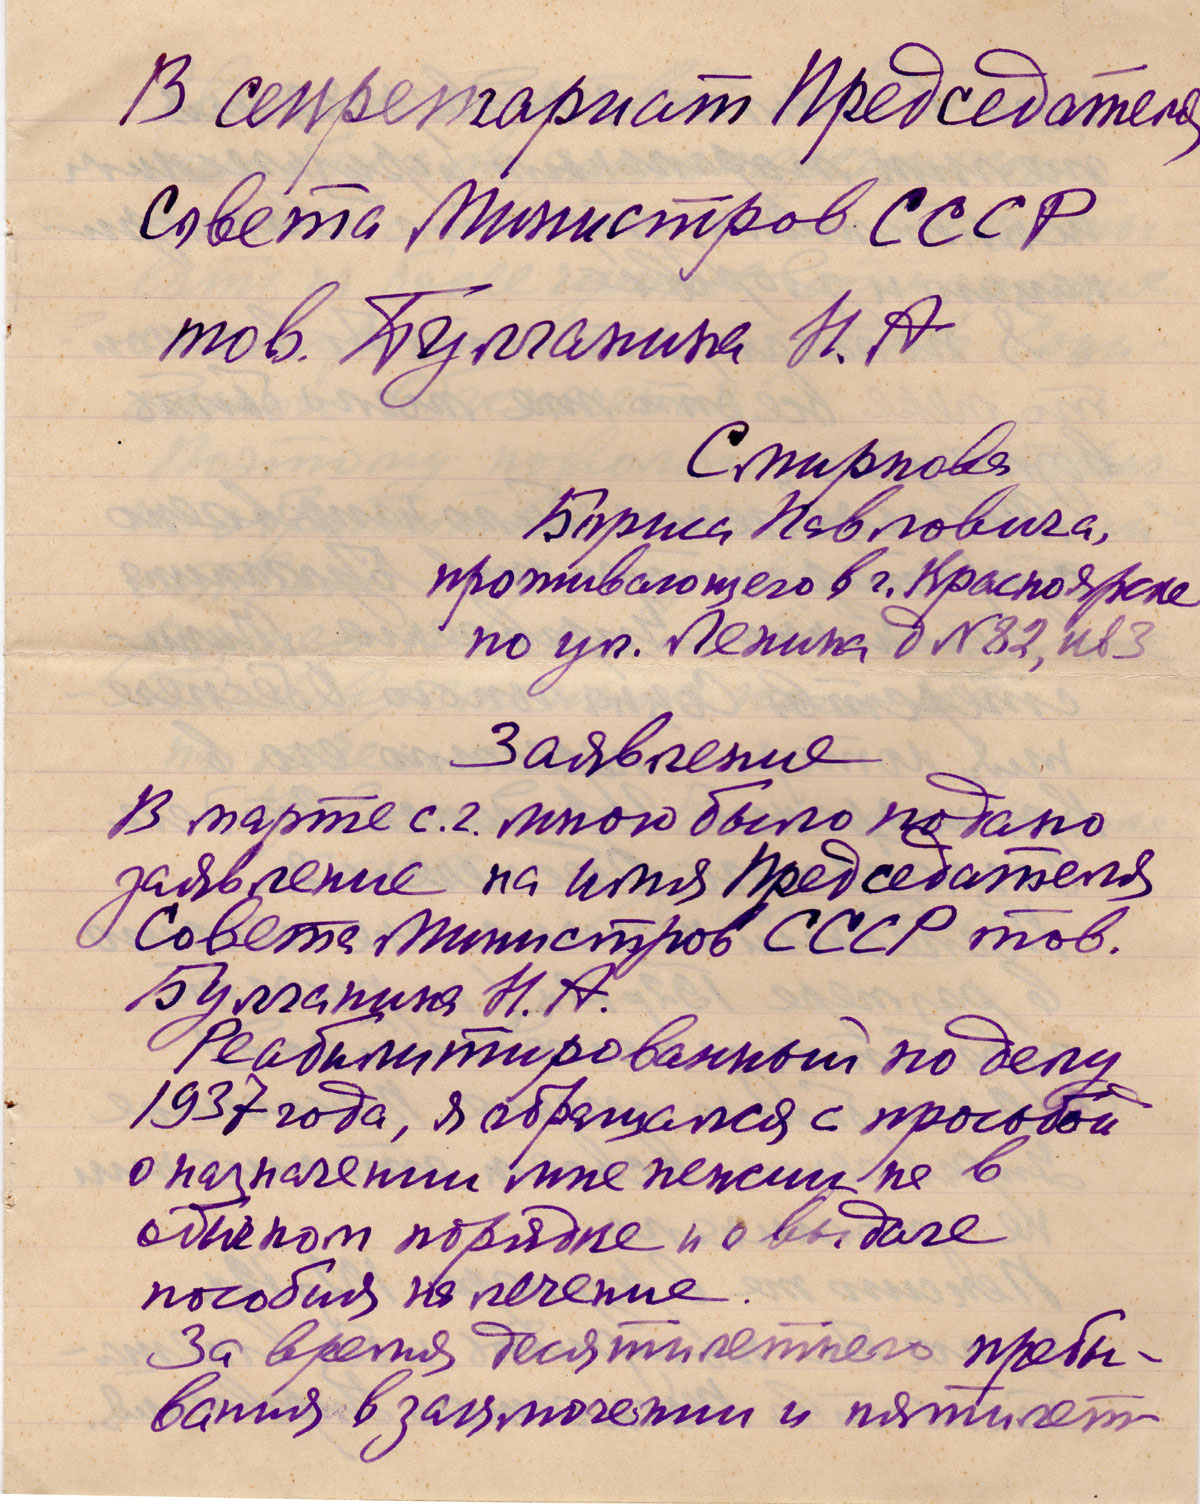 В секретариат Председателя
Совета Министров СССР
тов. Булганина Н. А
Смирнова
Бориса Павловича,
проживающего в г. Красноярске
по ул. Ленина д N 82, кв 3
Заявление
В марте с. г. мною было подано
заявление на имя Председателя
Совета Министров СССР тов.
Булганина Н. А.
Реабилитированный по делу
1937 года, я обращался с просьбой
о назначении мне пенсии не в
обычном порядке и о выдаче
пособия на лечение.
За время десятилетнего пребы-
вания в заключении и пятилет